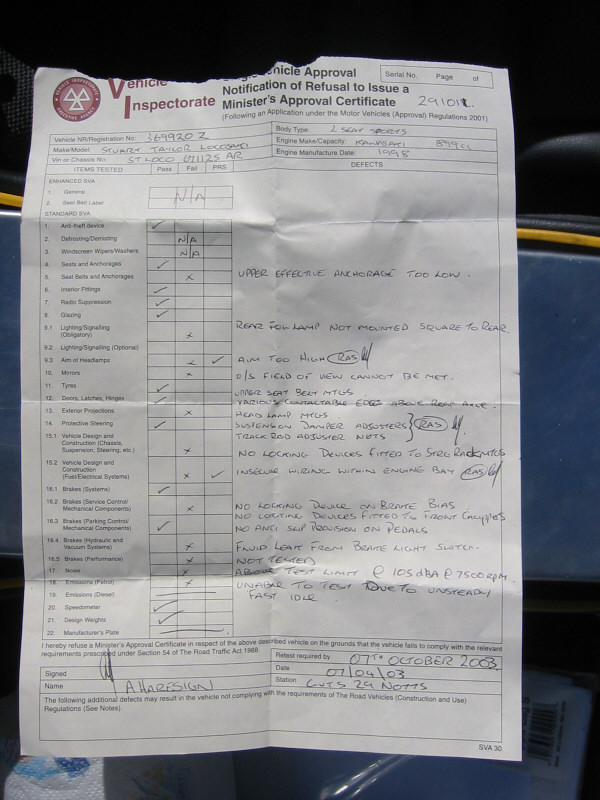 Vehicle
Inspectorate
Vehicle Approval
Notification of Refusal to Issue a
Minister's Approval Certificate
(Following an Application under the Motor Vehicles (Approval) Regulations 2001)
Serial No. Page of
Vehicle NR/Registration No: 369920 Z
Make/Model: STUART TAYLOR LOCOSAKI
Vin or Chassis No:
Body Type: 2 SEAT SPORTS
Engine Make/Capacity: KAWASAKI 899cc
Engine Manufacture Date: 1998
ITEMS TESTED Pass Fail PRS DEFECTS
ENHANCED SVA
1. General
2. Seat Belt Label
N/A
STANDARD SVA
1. Anti-theft device
2. Defrosting/Demisting N/A
3. Windscreen Wipers/Washers N/A
4. Seats and Anchorages
5. Seat Belts and Anchorages x UPPER EFFECTIVE ANCHORAGE TOO LOW.
6. Interior Fittings
7. Radio Suppression
8. Glazing
9.1 Lighting/Signalling (Obligatory) x REAR FOG LAMP NOT MOUNTED SQUARE TO REAR.
9.2 Lighting/Signalling (Optional)
9.3 Aim of Headlamps x AIM TOO HIGH RAS
10. Mirrors x O/S FIELD OF VIEW CANNOT BE MET.
11. Tyres
UPPER SEAT BELT MTGS
12. Doors, Latches, Hinges VARIOUS CONTACTABLE EDGES ABOVE REAR AXLE.
13. Exterior Projections x HEAD LAMP MTGS
14. Protective Steering SUSPENSION DAMPER ADJUSTERS RAS
TRACK ROD ADJUSTER NUTS
15.1 Vehicle Design and Construction (Chassis, Suspension, Steering, etc.) x NO LOCKING DEVICES FITTED TO STRG RACK MTGS
15.2 Vehicle Design and Construction (Fuel/Electrical Systems) x INSECURE WIRING WITHIN ENGINE BAY RAS
16.1 Brakes (Systems)
16.2 Brakes (Service Control/Mechanical Components) x NO LOCKING DEVICE ON BRAKE BIAS
NO LOCKING DEVICES FITTED TO FRONT CALIPERS
16.3 Brakes (Parking Control/Mechanical Components) NO ANTI SLIP PROVISION ON PEDALS
16.4 Brakes (Hydraulic and Vacuum Systems) x FLUID LEAK FROM BRAKE LIGHT SWITCH.
16.5 Brakes (Performance) x NOT TESTED
17. Noise x ABOVE TEST LIMIT @ 105 dBA @ 7500 RPM.
18. Emissions (Petrol) x UNABLE TO TEST DUE TO UNSTEADY
19. Emissions (Diesel) FAST IDLE.
20. Speedometer
21. Design Weights
22. Manufacturer's Plate
I hereby refuse a Minister's Approval Certificate in respect of the above described vehicle on the grounds that the vehicle fails to comply with the relevant
requirements prescribed under Section 54 of The Road Traffic Act 1988.
Signed
Name A HARESIGN
Retest required by 07TH OCTOBER 2003
Date 07/04/03
Station GVTS 29 NOTTS
The following additional defects may result in the vehicle not complying with the requirements of The Road Vehicles (Construction and Use)
Regulations (See Notes).
SVA 30